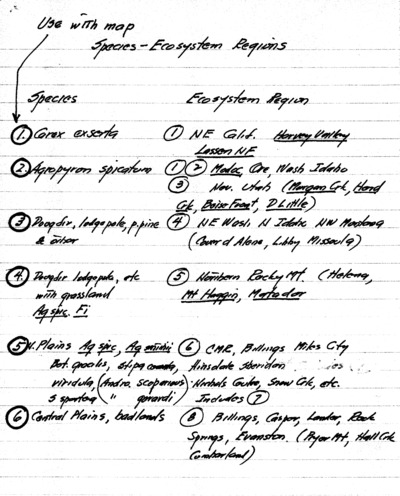 Use with map
Species - Ecosystem Regions
Species Ecosystem Region
1. Carex exserta 1 NE Calif. Harvey Valley
Lassen NF
2. Agropyron spicatum 1 2 Modoc, Ore, Wash Idaho
3 Nev. Utah (Morgan Crk, Hard
Crk, Boise Front, D Little)
3 Dougfir, lodgepole, p. pine 4 NE Wash N Idaho NW Montana
& other (Coeur d Alene, Libby Missoula)
4. Dougfir lodgepole, etc 5 Northern Rocky Mt. (Helena,
with grassland Mt Haggin, Matador
Ag spic. Fi
5 N. Plains Ag spic, Ag smithii 6 CMR, Billings Miles City
Bot. gracilis, stipa comata, Sheridan
viridula, (Andro. scoparius Snow Crk, etc.
" gerardi) Includes 7
6 Central Plains, badlands 8 Billings, Casper, Lander, Rock
Springs, Evanston. (Pryor Mt, Hall Crk
Cumberland)